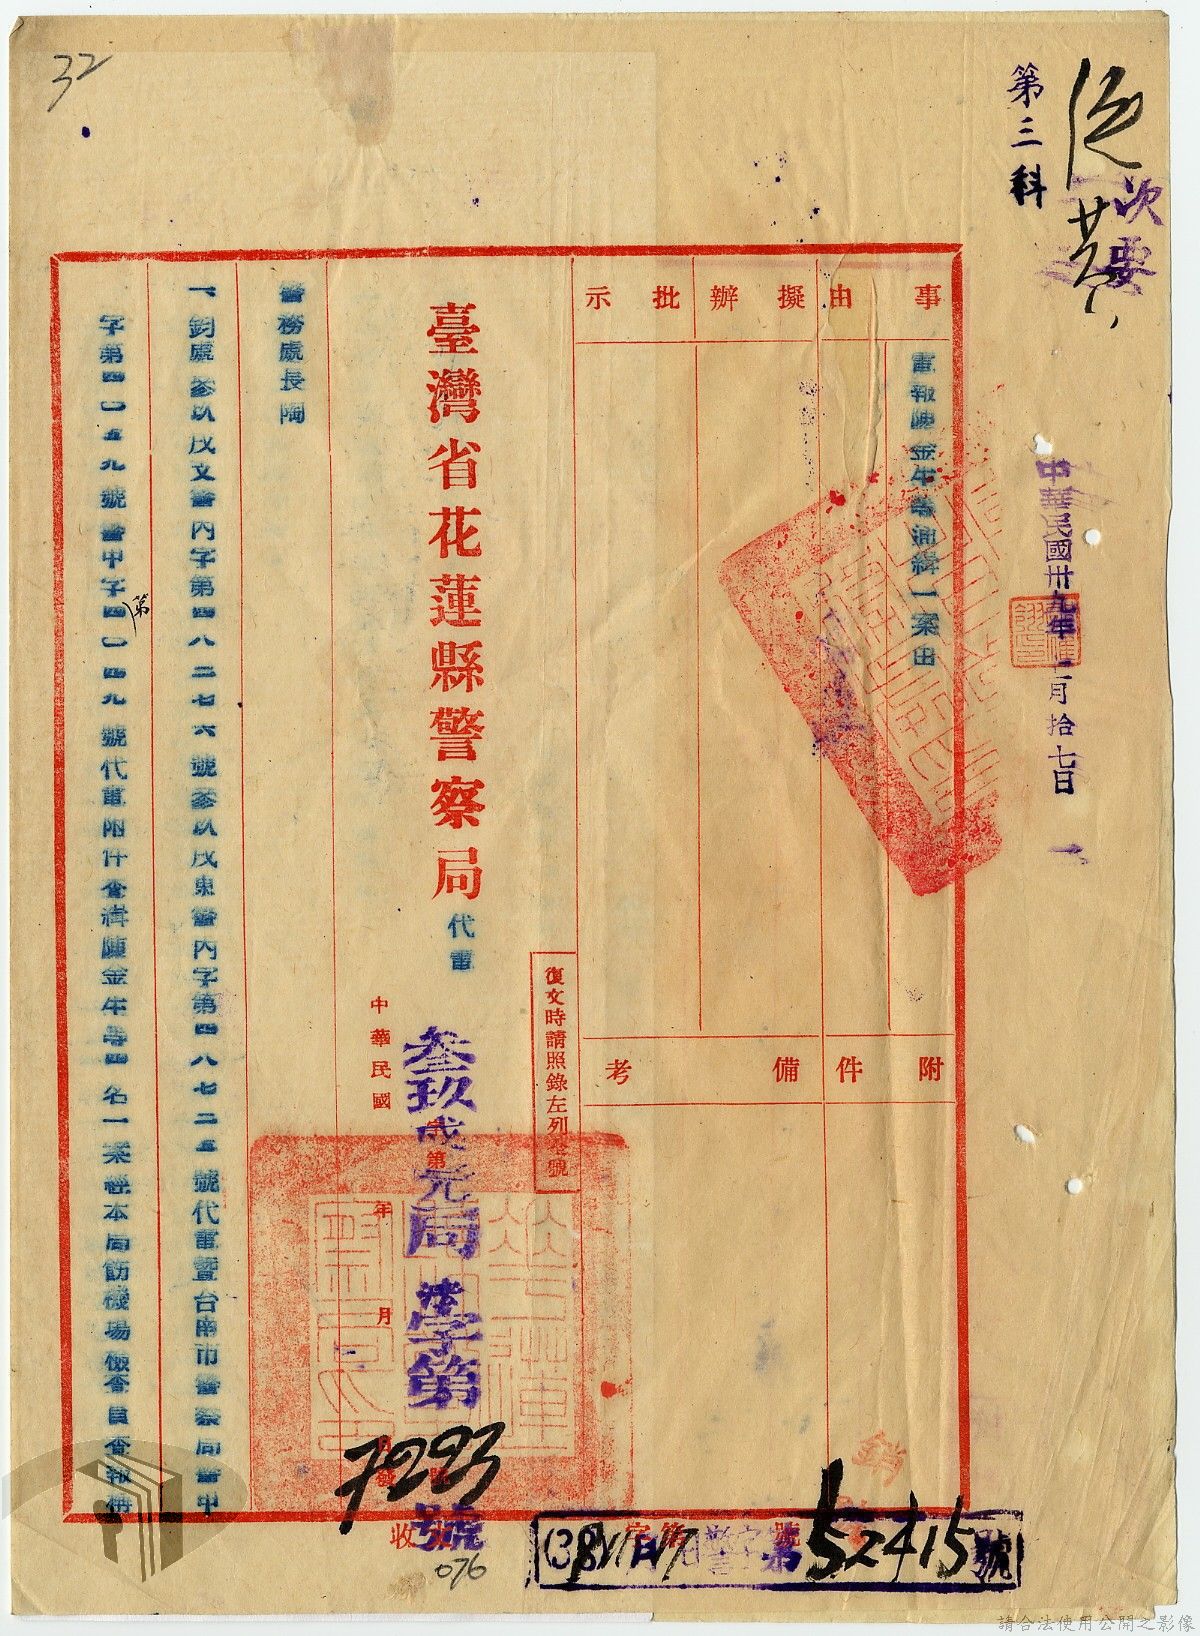 32
次要
第三科
中華民國卅九年 二月拾七日
事由
電報陳金牛等通緝一案由
擬辦
批示
附件
備考
復文時請照錄左列 號
臺灣省花蓮縣警察局代電
叁玖戌元局 字第7293號
中華民國 年 月
警務處長陶
一、鈞處叁玖戌文警內字第四八二七六號叁玖戌東警內字第四八七二五號代電暨台南市警察局警中
字第四〇五九號警中字第四〇四九號代電附件查緝陳金牛等四名一案經本局飭機場檢查員查報稱
收
字第 號
第52415號
076
請合法使用公開之影像